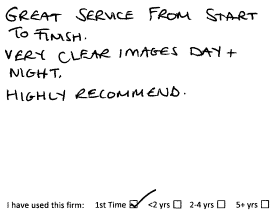 GREAT SERVICE FROM START
TO FINISH.
VERY CLEAR IMAGES DAY +
NIGHT.
HIGHLY RECOMMEND.
I have used this firm: 1st Time ☑ <2 yrs ☐ 2-4 yrs ☐ 5+ yrs ☐